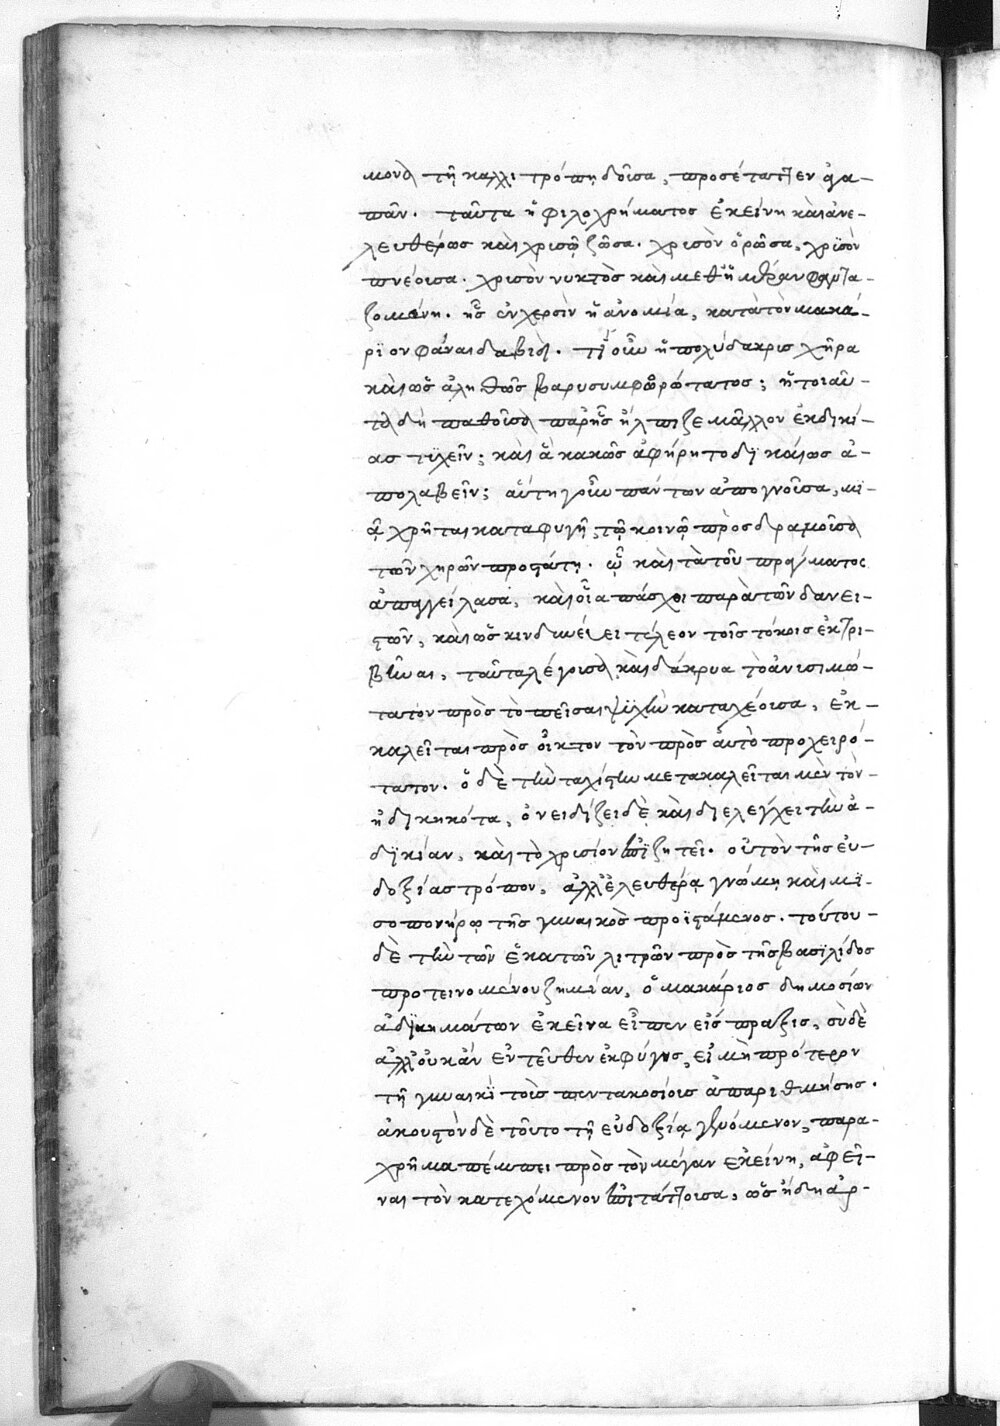 μονα τῆ καλλιτρόπη δοῖσα, προσέταττεν ἀγα-
πᾶν. ταῦτα ἡ φιλοχρήματος ἐκείνη καὶ ἀνε-
λευθέρως καὶ χρισῶ ζῶσα. χρισὸν ὁρῶσα, χρισὸν
πνέοισα. χρισὸν νυκτὸς καὶ μεθ' ἡμέραν φαντα-
ζομένη. ἧς ἐν χερσὶν ἡ ἀνομία, κατὰ τὸν μακά-
ριον φάναι δαβίδ. τί οὖν ἡ πολύδακρις χήρα
καὶ ὡς ἀληθῶς βαρυσυμφορώτατος; ἡ τοιαῦ-
τα δὴ παθοῖσα παρ' ἧς ἤλπιζε μᾶλλον ἐκδικί-
ας τιχεῖν; καὶ ἃ κακῶς ἀφήρητο δικαίως ἀ-
πολαβεῖν; αὕτη γοῦν πάντων ἀπογνοῖσα, μι-
ᾷ χρῆται καταφυγῇ, τῷ κοινῷ προσδραμοῖσα
τῶν χηρῶν προστάτῃ. ᾧ καὶ τὰ τοῦ πράγματος
ἀπαγγείλασα, καὶ οἷα πάσχοι παρὰ τῶν δανει-
στῶν, καὶ ὡς κινδυνεύει τέλεον τοῖς τόκοις ἐκτρι-
βῆναι, ταῦτα λέγοισα καὶ δάκρυα τὸ ἀνισιμώ-
τατον πρὸς τὸ πεῖσαι ψιχὴν καταχέοισα, ἐκ-
καλεῖται πρὸς οἶκτον τὸν πρὸς αὐτὸ προχειρό-
τατον. ὁ δὲ τὴν ταχίστην μετακαλεῖται μὲν τὸν
ἠδικηκότα, ὀνειδίζει δὲ καὶ διελέγχει τὴν ἀ-
δικίαν, καὶ τὸ χρισίον ἐπιζητεῖ. οὐ τὸν τῆς εὐ-
δοξίας τρόπον, ἀλλ' ἐλευθέρᾳ γνώμῃ καὶ μι-
σοπονήρῳ τῆς γυναικὸς προϊστάμενος. τούτου
δὲ τὴν τῶν ἑκατὸν λιτρῶν πρὸς τῆς βασιλίδος
προτεινομένου ζημίαν, ὁ μακάριος δημοσίων
ἀδικημάτων ἐκεῖνα εἶπεν εἰσπράξις, σὺ δὲ
ἀλλ' οὐκ ἂν ἐντεῦθεν ἐκφύγῃς, εἰ μὴ πρότερον
τῇ γυναικὶ τοὶς πεντακοσίοις ἀπαριθμήσῃς.
ἀκουστὸν δὲ τοῦτο τῇ εὐδοξίᾳ γενόμενον, παρα-
χρῆμα πέμπει πρὸς τὸν μέγαν ἐκείνη, ἀφεῖ-
ναι τὸν κατεχόμενον ἐπιτάττοισα, ὡς ἤδη ἀρ-